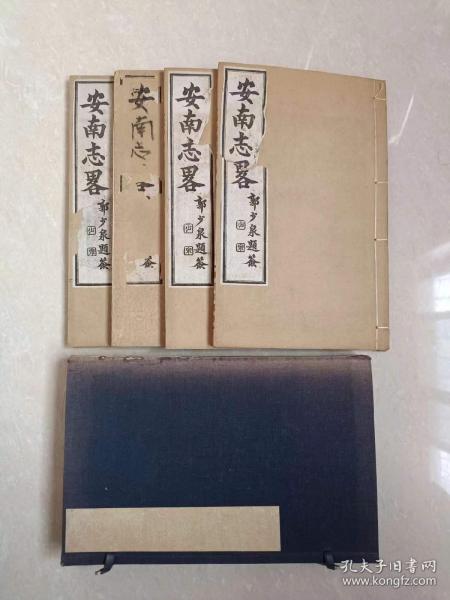 安南志畧
郭少泉題簽
安南志
簽
安南志畧
郭少泉題簽
安南志畧
郭少泉題簽
孔夫子旧书网
www.kongfz.com